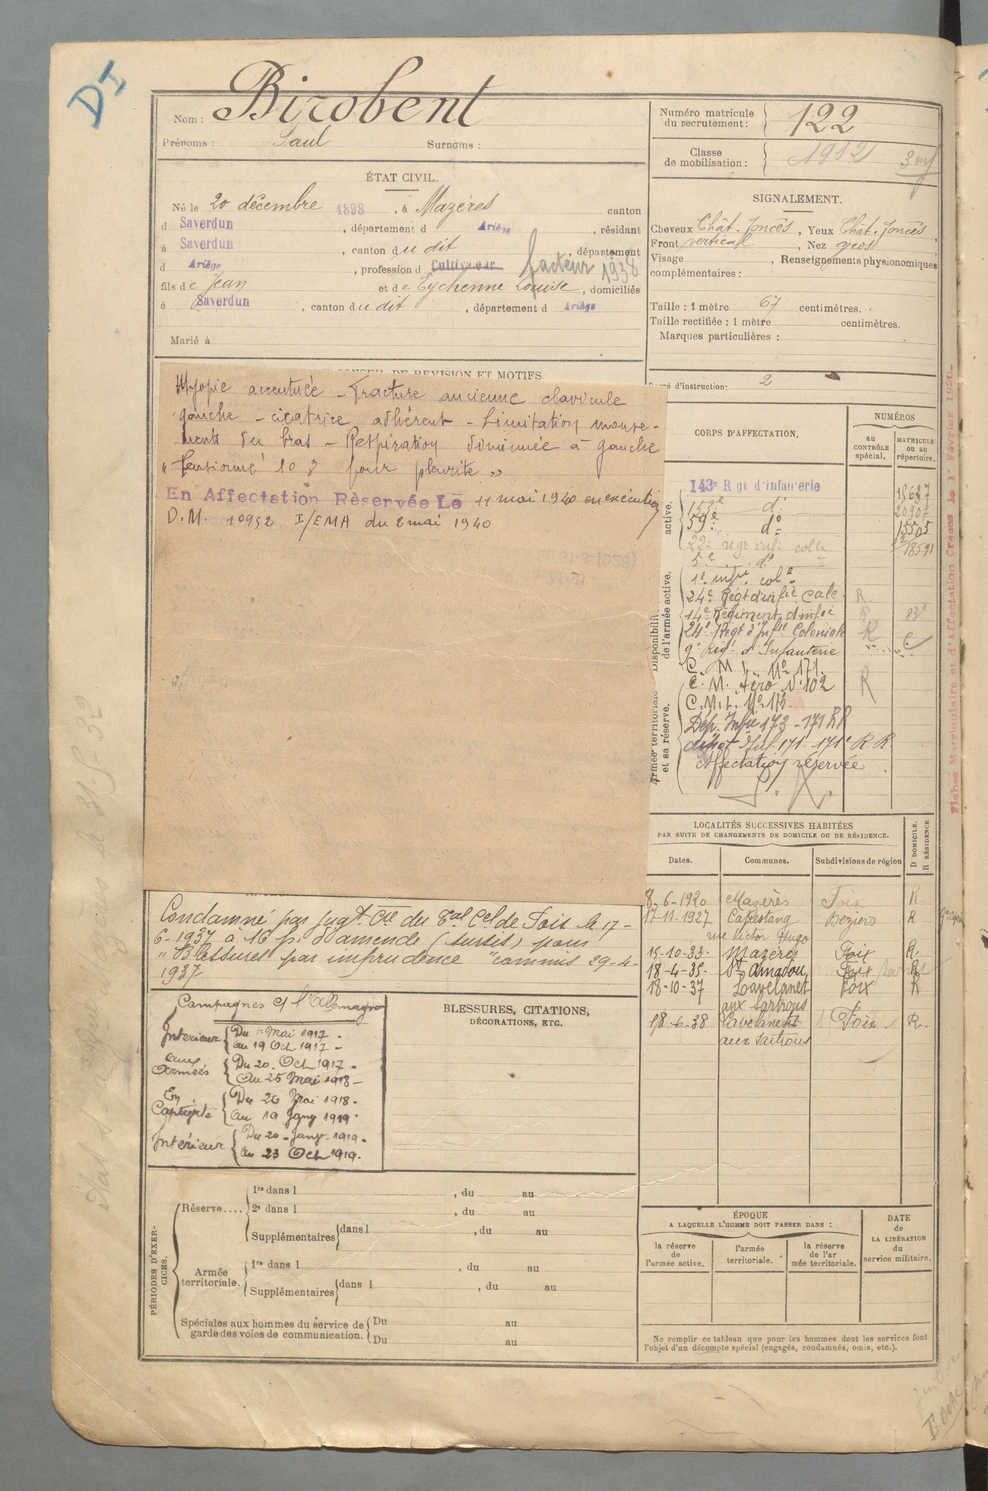 DI
Nom : Birobent
Prénoms : Paul Surnoms :
Numéro matricule
du recrutement : 122
Classe
de mobilisation : 1912
ÉTAT CIVIL.
Né le 20 décembre 1898, à Mazères canton
d Saverdun, département d Ariège, résidant
à Saverdun, canton du dit, département
d Ariège, profession d Cultivateur facteur 1938
fils de Jean et de Eychenne Louise, domiciliés
à Saverdun, canton du dit, département d Ariège
Marié à
SIGNALEMENT.
Cheveux Chât. foncés, Yeux Chât. foncés,
Front vertical, Nez gros
Visage , Renseignements physionomiques
complémentaires :
Taille : 1 mètre 67 centimètres.
Taille rectifiée : 1 mètre centimètres.
Marques particulières :
d'instruction : 2
CONSEIL DE REVISION ET MOTIFS
Myopie accentuée – Fracture ancienne clavicule
gauche – cicatrice adhérent – Limitation mouve-
ments du bras – Respiration diminuée à gauche
"Pensionné 10 % pour pleurite"
En Affectation Réservée Le 11 mai 1940 en exécution
D.M. 10952 I/EMA du 2 mai 1940
CORPS D'AFFECTATION.
NUMÉROS
au
CONTRÔLE
spécial.
MATRICULE
ou au
répertoire.
active.
Disponibilité
de l'armée active.
Armée territoriale
et sa réserve.
143e Rgt d'infanterie 15637
153e do 20907
59e do 15505
22e regt inf. colle 18591
5e do
1e infie cole
24e Regt d'infie Cole R
14e Régiment d'infie R
24e Regt d'Infie Coloniale R
9e Regt d'Infanterie
C. M. I. No 171.
C. M. Aéro No 102 R
C.M.I. No 173
Dép. Infie 173 - 171 RR
dépôt d'Inf 171 - 171e R.R.
Affectation réservée
LOCALITÉS SUCCESSIVES HABITÉES
PAR SUITE DE CHANGEMENTS DE DOMICILE OU DE RÉSIDENCE.
Dates. Communes. Subdivisions de région D DOMICILE. R RÉSIDENCE
8-6-1920 Mazères Foix R.
17-11-1927 Capestang Beziers R
rue Victor Hugo
15-10-33- Mazères Foix R
18-4-35- St Amadou Foix R
18-10-37 Lavelanet Foix R
aux sartrous
18-6-38 Lavelanet Foix R.
aux sartrous
Condamné par Jugt Cre du Bal Cel de Foix le 17-
6-1937 à 16 f. d'amende (sursis) pour
"Blessures par imprudence" commis 29-4-
1937
Campagnes c/ l'Allemagne
Intérieur Du 1 Mai 1917 -
au 19 Oct 1917 -
aux Armées Du 20. Oct 1917 -
Au 25 Mai 1918 -
En Captivité Du 26 Mai 1918 -
au 19 Janv 1919 -
Intérieur Du 20 - Janv. 1919 -
au 23 Oct 1919.
BLESSURES, CITATIONS,
DÉCORATIONS, ETC.
PÉRIODES D'EXER-
CICES.
Réserve.... 1re dans l , du au
2e dans l , du au
Supplémentaires dans l , du au
Armée
territoriale. 1re dans l , du au
Supplémentaires dans l , du au
Spéciales aux hommes du service de Du au
garde des voies de communication. Du au
ÉPOQUE
A LAQUELLE L'HOMME DOIT PASSER DANS :
la réserve
de
l'armée active.
l'armée
territoriale.
la réserve
de l'ar
mée territoriale.
DATE
de
LA LIBÉRATION
du
service militaire.
Ne remplir ce tableau que pour les hommes dont les services font
l'objet d'un décompte spécial (engagés, condamnés, omis, etc.).
Fiches Matriculaire et d'Affectation Créées le 1er Février 1926